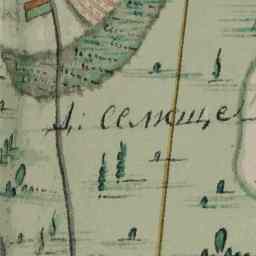 Д: Селище